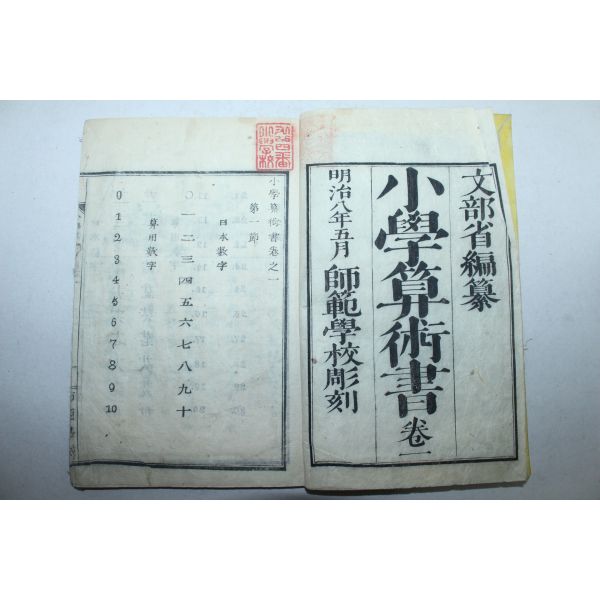 文部省編纂
小學算術書 卷一
明治八年五月 師範學校彫刻
小學算術書卷之一
第一節
日本數字
〇 一 二 三 四 五 六 七 八 九 十
算用數字
0 1 2 3 4 5 6 7 8 9 10